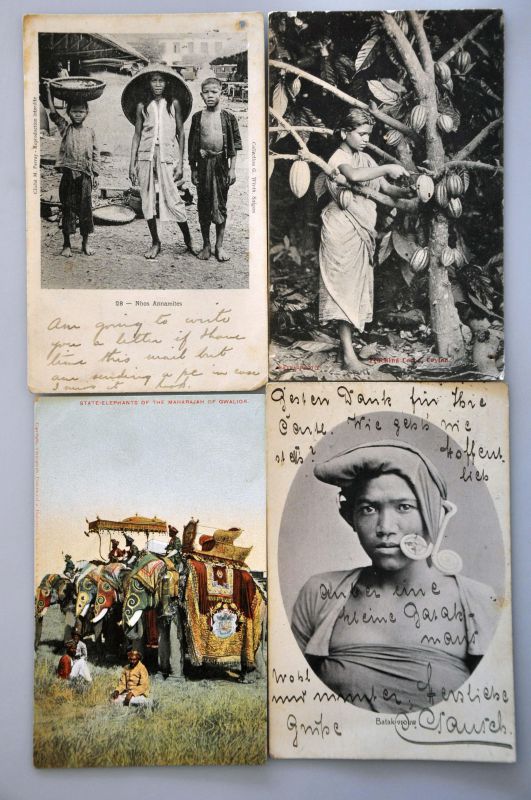 Cliché M. Perray - Reproduction interdite
Collection G. Wirth, Saïgon
28 — Nhos Annamites
Am going to write
you a letter if I have
time this mail but
am sending pc in case
I miss it
Plucking Cocoa, Ceylon.
STATE-ELEPHANTS OF THE MAHARAJAH OF GWALIOR.
Besten Dank für Ihre
Carte. Wie geht's wie
steht's? Hoffent-
lich
Anbei eine
kleine Batak-
maus
Wohl
und munter. Herzliche
Grüße
Batakvrouw